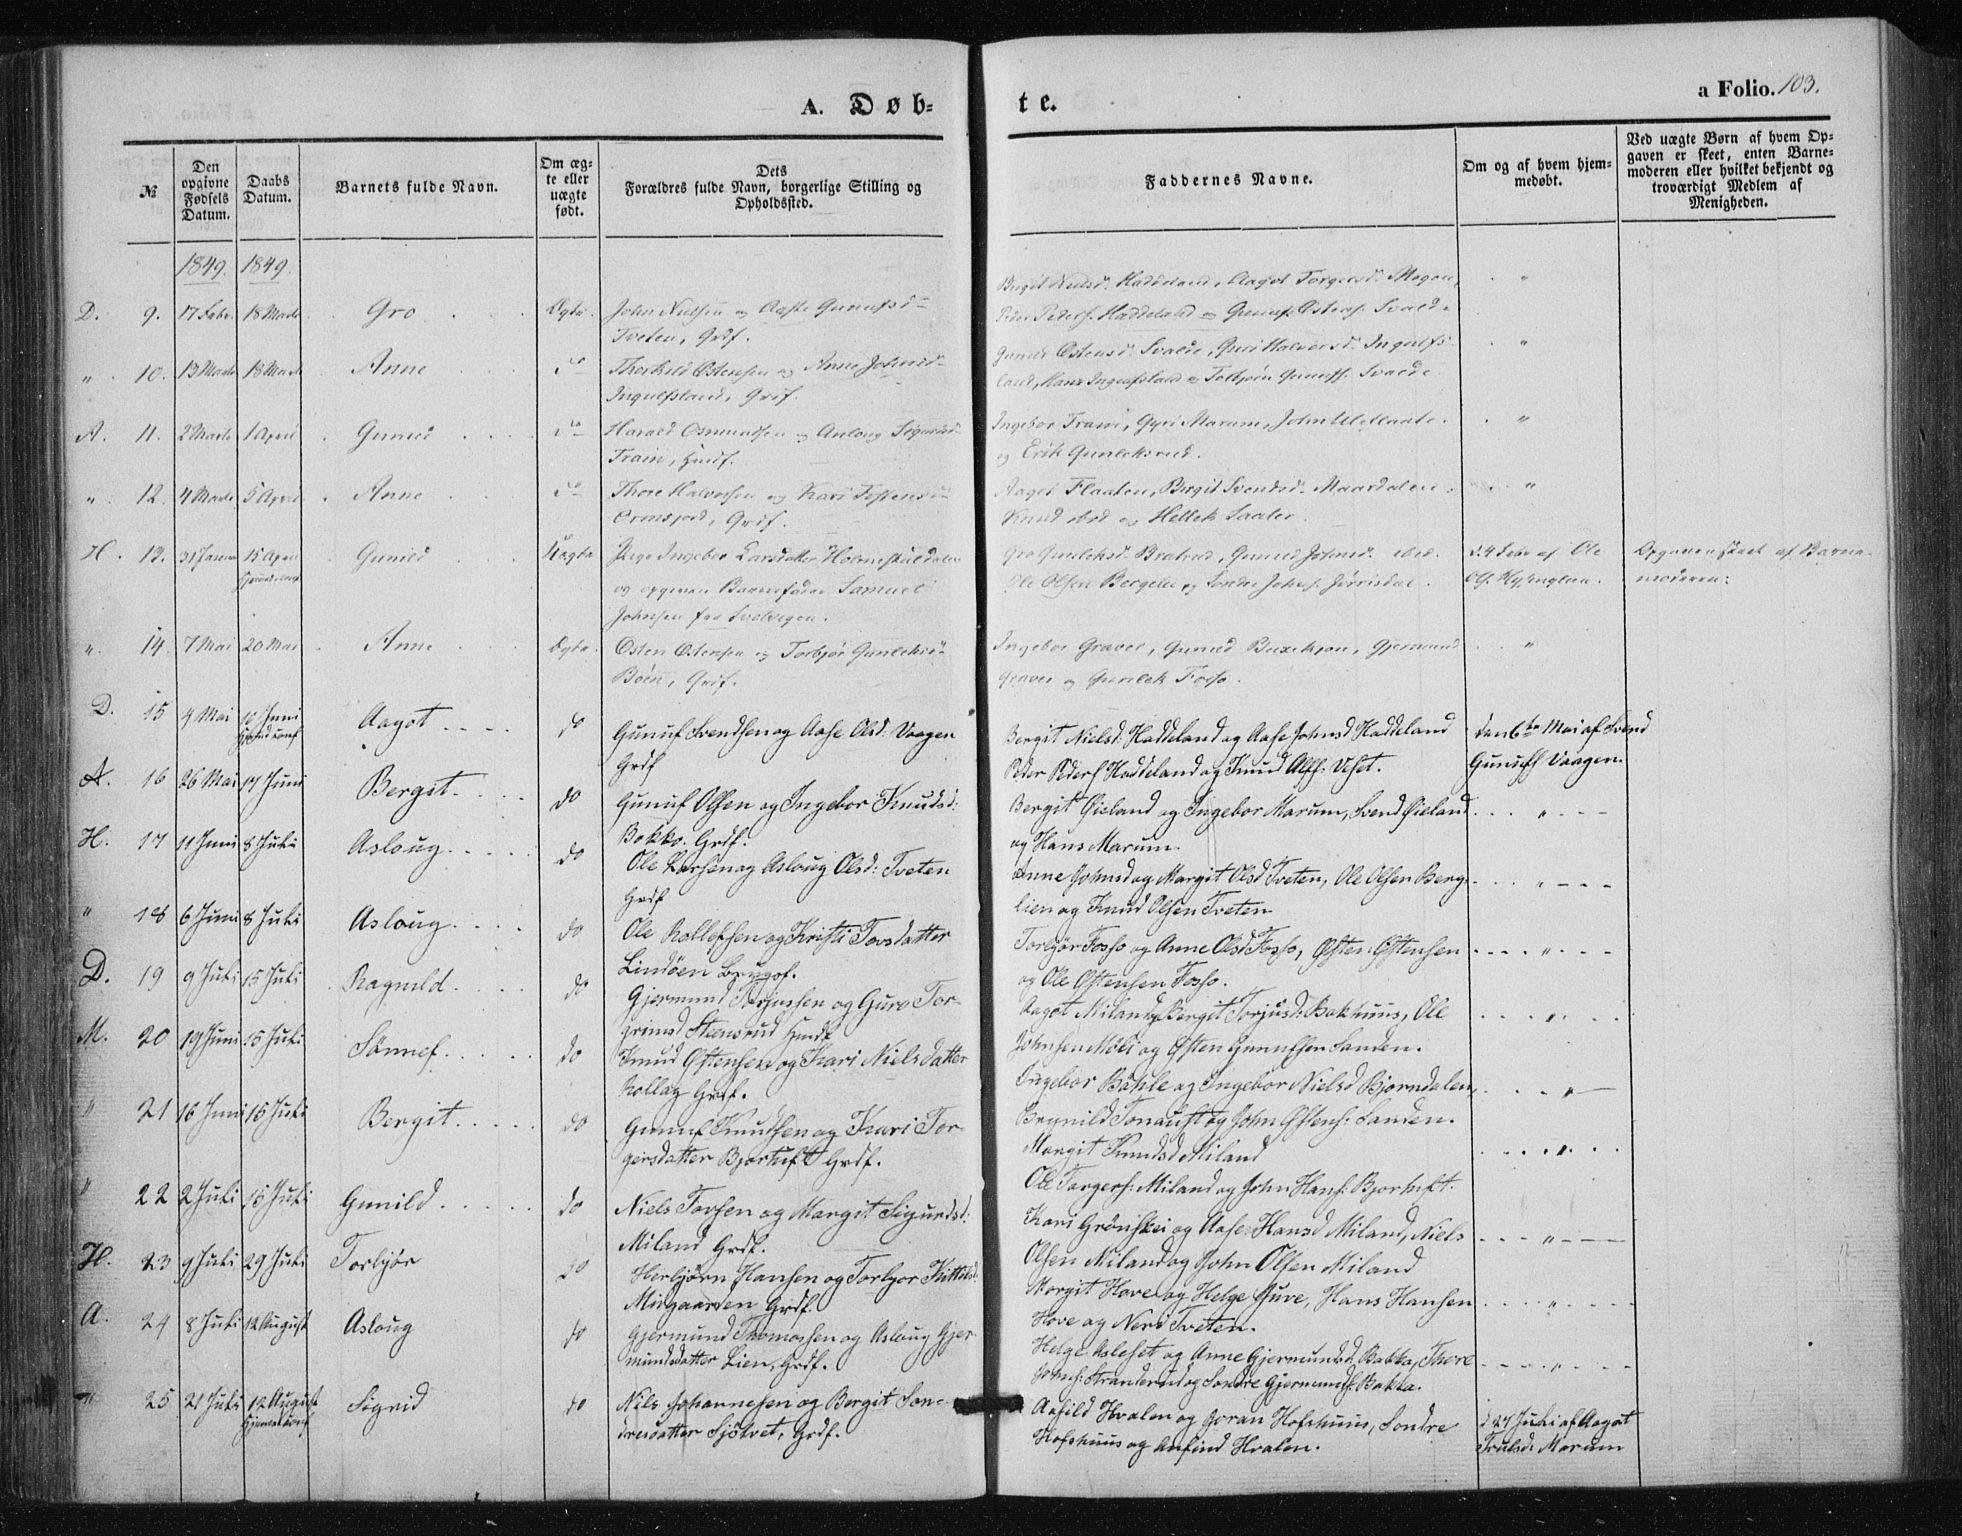 A. Døb-
te.
a Folio. 103.
№
Den opgivne Fødsels Datum.
Daabs Datum.
Barnets fulde Navn.
Om ægte eller uægte født.
Dets
Forældres fulde Navn, borgerlige Stilling og
Opholdssted.
Faddernes Navne.
Om og af hvem hjem-
medøbt.
Ved uægte Børn af hvem Op-
gaven er skeet, enten Barne-
moderen eller hvilket bekjendt og
troværdigt Medlem af
Menigheden.
1849. 1849.
D. 9. 17 Febr. 18 Marts Gro Ægte. John Nielsen og Aaste Gunufsd.
Tveten, Grdf.
Birgit Nielsd. Haddeland, Aagot Torgersd. Mogen, "
Peder Peders. Haddeland og Gunuf Ostens. Svalde
" 10. 13 Marts 18 Marts Anne do Thorkild Ostensen og Anne Johnsd.
Ingulfsland, Grdf.
Gunild Ostensd. Svalde, Guri Halvorsd. Ingulfs- "
land, Hans Ingulfsland og Torbjørn Gunufs. Svalde.
A. 11. 2 Marts 1 April Gunild do Harald Osmundsen og Asloug Sigurdsd.
Traim, Husf.
Ingebor Traim, Gyri Marum, John "
og Erik Gunleksrud.
" 12. 4 Marts 5 April Anne do Thore Halvorsen og Kari Tostensd.
Ormsjord, Grdf.
Aagot Flaaten, Birgit Svendsd. Maardalen "
Knud ibid og Hellek Saaler.
H. 13. 31 Januar 15 April Gunild Uægte Pige Ingebor Larsdatter
og opgiven Barnefader Samuel
Johnsen fra Svelvigen.
Gro Gunleksd. Gunild Johnsd. ibid.
Ole Olsen Bergelie og Sondre Johns.
d. 4 Febr af Ole
Ols.
Opgaven skeet af Barne-
moderen:
" 14. 7 Mai 20 Mai Anne Ægte Osten Ostensen og Torbjør Gunleksd.
Böen, Grdf.
Ingebor Graver, Gunild Buxekjon, Gjermund "
Graver og Gunlek Fosso.
D. 15 4 Mai 10 Juni Aagot do Gunuf Svendsen og Aase Olsd. Vaagen
Grdf
Bergit Nielsd: Haddeland og Aase Johnsd Haddeland
Peder Peders Haddeland og Knud Alfs: Uset.
den 6te Mai af Svend
Gunufs Vaagen.
A. 16 26 Mai 17 Juni Bergit do Gunuf Olsen og Ingebor Knudsd:
Bokko. Grdf.
Bergit Øieland og Ingebor Marum, Svend Øieland "
og Hans Marum.
H. 17 11 Juni 8 Juli Asloug do Ole Larsen og Asloug Olsd: Tveten
Grdf
Anne Johnsd og Margit Olsd Tveten, Ole Olsen Berg- "
lien og Knud Olsen Tveten
" 18 6 Juni 8 Juli Asloug do Ole Rollefsen og Kristi Tovsdatter
Lindøen Brugsf.
Torbjør Fosso og Anne Olsd Fosso, Østen Østensen "
og Ole Østensen Fosso.
D. 19 9 Juli 15 Juli Ragnild do Gjermund Torjussen og Guro Tor-
grimsd Steensrud Husf
Aagot Miland og Bergit Torjusd: Bakhuus, Ole "
Johnsen Möli og Østen Gunufsen Sanden.
M. 20 19 Juni 15 Juli Sønnef do Knud Østensen og Kari Nielsdatter
Rollag Grdf.
Ingebor Böhle og Ingebor Nielsd Bjorndalen, "
Brynild Tonauft og John Østens: Sanden.
" 21 16 Juni 15 Juli Bergit do Gunuf Knudsen og Kari Tor-
gersdatter Bjortuft Grdf.
Margit Knudsd Miland "
Ole Torgers: Miland og John Hans: Bjortuft.
" 22 2 Juli 15 Juli Gunild do Niels Tovsen og Margit Sigurdsd:
Miland Grdf.
Kari Grönskei og Aase Hansd Miland, Niels "
Olsen Miland og John Olsen Miland
H. 23 9 Juli 29 Juli Torbjør do Herbjørn Hansen og Torbjor Kittilsd:
Midgaarden Grdf.
Margit Hove og Helge Juve, Hans Hansen "
Hove og Neri Tveten.
A. 24 8 Juli 12 August Asloug do Gjermund Thomassen og Asloug Gjer-
mundsdatter Lien, Grdf.
Helge Asleset og Anne Gjermundsd Bakka, Thore "
Johns: Stranderud og Sondre Gjermunds Bakka.
" 25 21 Juli 12 August Sigrid do Nils Johannesen og Bergit Son-
dresdatter Sjötvet, Grdf.
Aasild Hvalen og Jøran Hofshuus, Sondre
Hofshuus og Anfind Hvalen.
d 27 Juli af Aagot
Trulsd: Marum